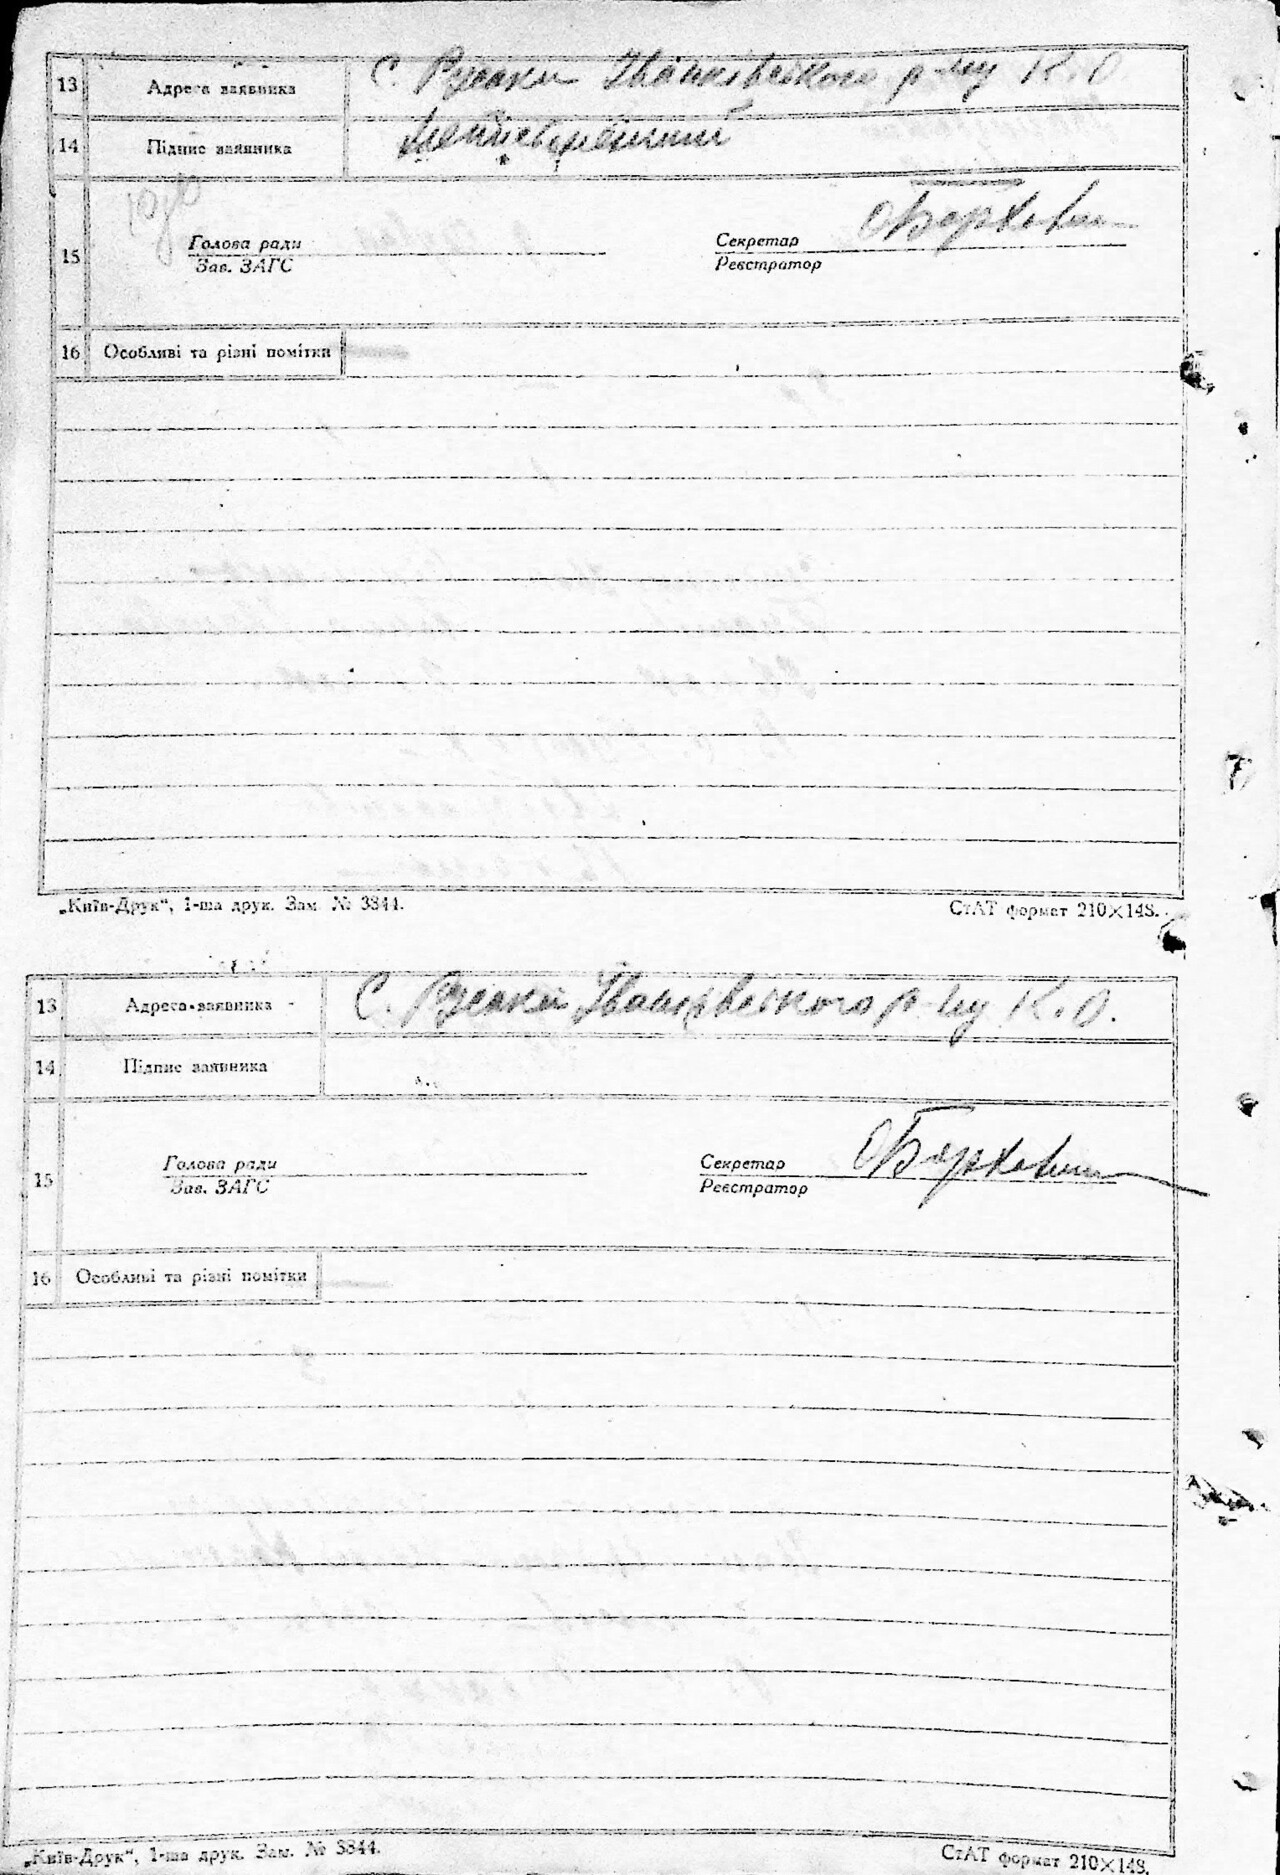 13 Адреса заявника С. Русаки Іванківського р-ну К.О
14 Підпис заявника
15 Голова ради Секретар
Зав. ЗАГС Реєстратор
16 Особливі та різні помітки —
„Київ-Друк“, 1-ша друк. Зам. № 3844. СтАТ формат 210×148.
13 Адреса заявника С. Русаки Іванківського р-ну К.О.
14 Підпис заявника
15 Голова ради Секретар
Зав. ЗАГС Реєстратор
16 Особливі та різні помітки —
„Київ-Друк“, 1-ша друк. Зам. № 3844. СтАТ формат 210×148.